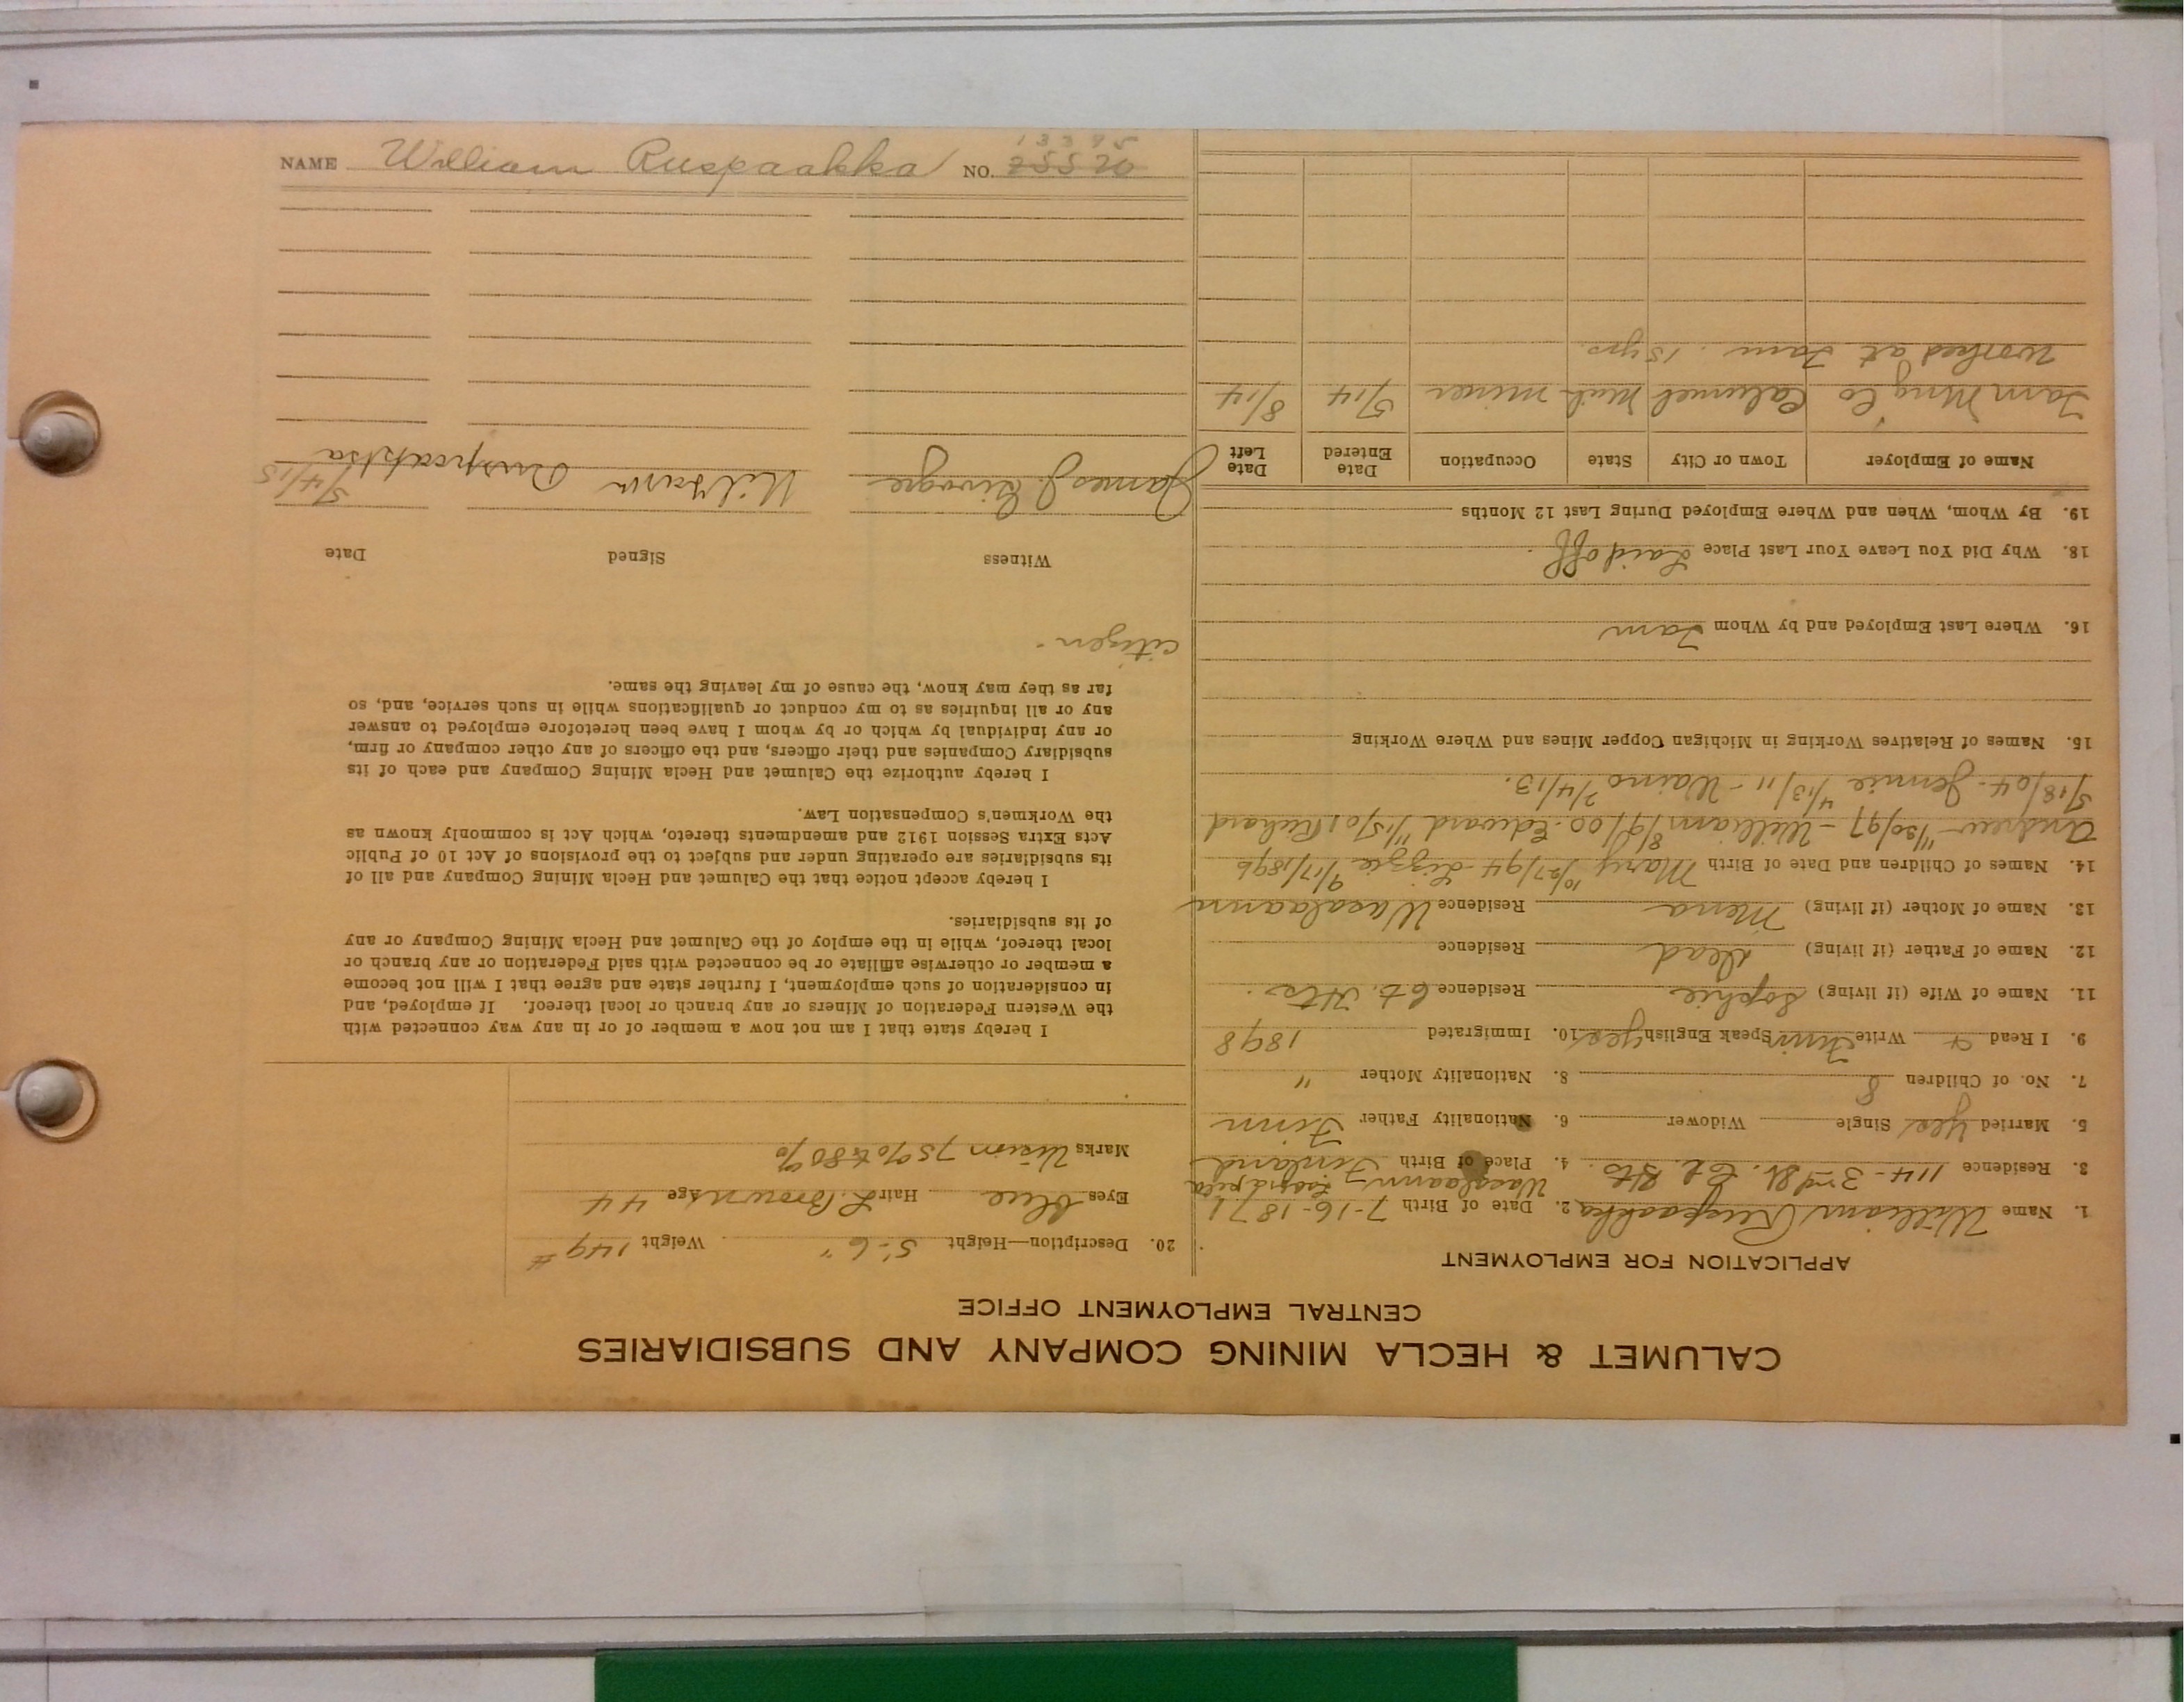 CALUMET & HECLA MINING COMPANY AND SUBSIDIARIES
CENTRAL EMPLOYMENT OFFICE
APPLICATION FOR EMPLOYMENT
1. Name William Ruspaakka 2. Date of Birth 7-16-1871
3. Residence 114-3rd St. Ct. Hts. 4. Place of Birth Finland
5. Married Yes Single Widower 6. Nationality Father Finn
7. No. of Children 8 8. Nationality Mother "
9. I Read & Write Finn Speak English yes 10. Immigrated 1898
11. Name of Wife (if living) Sophie Residence Ct. Hts.
12. Name of Father (if living) Dead Residence
13. Name of Mother (if living) Mena Residence
14. Names of Children and Date of Birth Mary 10/27/94 Lizzie 9/17/1896
Andrew 11/30/97 - William 8/9/00 - Edward 11/15/01 Richard
5/18/04 - Jennie 4/13/11 - Waino 7/4/13.
15. Names of Relatives Working in Michigan Copper Mines and Where Working
16. Where Last Employed and by Whom Tam
18. Why Did You Leave Your Last Place Laid off.
19. By Whom, When and Where Employed During Last 12 Months
Name of Employer Town or City State Occupation Date Entered Date Left
Tam Mng Co Calumet Mich miner 5/14 8/14
Worked at Tam. 15 yrs.
20. Description—Height 5'-6" Weight 149#
Eyes blue Hair L. Brown Age 44
Marks Vision 75% & 80%
I hereby state that I am not now a member of or in any way connected with
the Western Federation of Miners or any branch or local thereof. If employed, and
in consideration of such employment, I further state and agree that I will not become
a member or otherwise affiliate or be connected with said Federation or any branch or
local thereof, while in the employ of the Calumet and Hecla Mining Company or any
of its subsidiaries.
I hereby accept notice that the Calumet and Hecla Mining Company and all of
its subsidiaries are operating under and subject to the provisions of Act 10 of Public
Acts Extra Session 1912 and amendments thereto, which Act is commonly known as
the Workmen's Compensation Law.
I hereby authorize the Calumet and Hecla Mining Company and each of its
subsidiary Companies and their officers, and the officers of any other company or firm,
or any individual by which or by whom I have been heretofore employed to answer
any or all inquiries as to my conduct or qualifications while in such service, and, so
far as they may know, the cause of my leaving the same.
citizen -
Witness Signed Date
James J. William Ruspaakka 5/4/15
13395
NAME William Ruspaakka NO. 25520